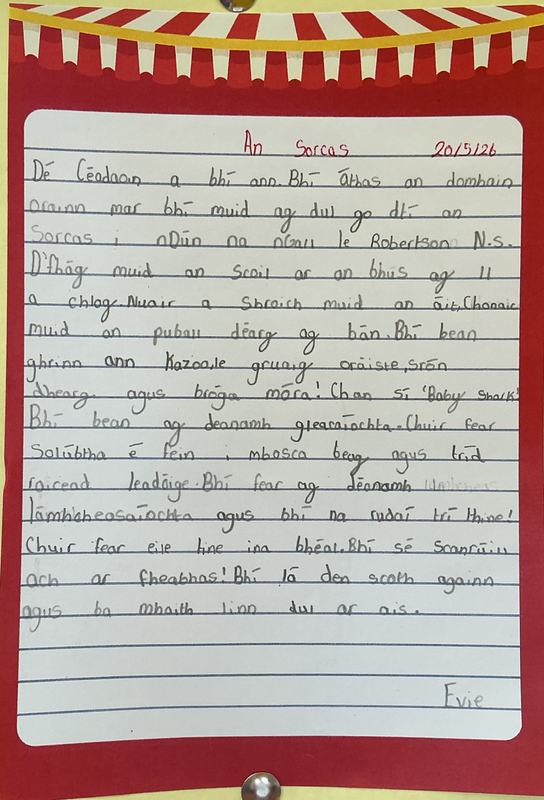 An Sorcas 20/5/26
Dé Céadaoin a bhí ann. Bhí áthas an domhain
orainn mar bhí muid ag dul go dtí an
Sorcas i nDún na nGall le Robertson N.S.
D'fhág muid an scoil ar an bhus ag 11
a chlog. Nuair a shroich muid an áit, Chonaic
muid an puball déarg ag bán. Bhí bean
ghrinn ann Kazoo, le gruaig oráiste, srón
dhearg agus bróga móra! Chan sí 'Baby Shark'!
Bhí bean ag deanamh gleacaíochta. Chuir fear
solúbtha é féin i mbosca beag agus tríd
raicead leadóige. Bhí fear ag déanamh
lámhcheasaíochta agus bhí na rudaí trí thine!
Chuir fear eile tine ina bhéal. Bhí sé scanrúil
ach ar fheabhas! Bhí lá den scoth againn
agus ba mhaith linn dul ar ais.
Evie